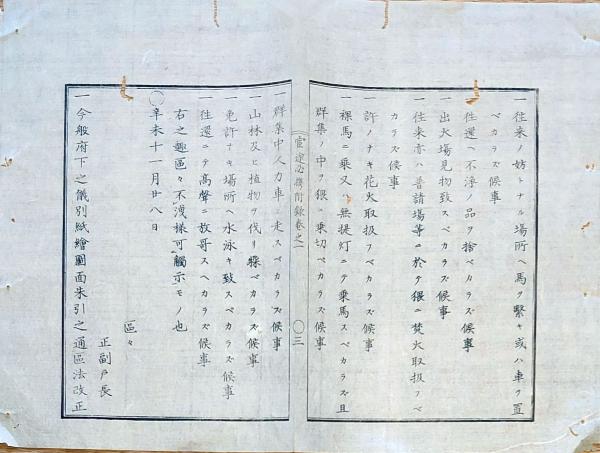 一往来ノ妨トナル場所ヘ馬ヲ繋キ或ハ車ヲ置
ベカラズ候事
一往還ヘ不浄ノ品ヲ捨ベカラズ候事
一出火場見物致スベカラズ候事
一往来亦ハ普請場等ニ於テ猥ニ焚火取扱フベ
カラズ候事
一許ノナキ花火取扱フベカラズ候事
一裸馬ニ乗又ハ無提灯ニテ乗馬スベカラズ且
群集ノ中ヲ猥ニ乗切ベカラズ候事
必携附録巻之一
〇三
一群集中人力車ヲ走スベカラズ候事
一山林及ヒ植物ヲ伐リ採ベカラズ候事
一免許ナキ場所ヘ水泳キ致スベカラズ候事
一往還ニテ高聲ニ放哥スヘカラズ候事
右之趣區々不洩様可觸示モノ也
〇辛未十一月廿八日
區々
正副戸長
一今般府下之儀別紙繪圖面朱引之通區法改正